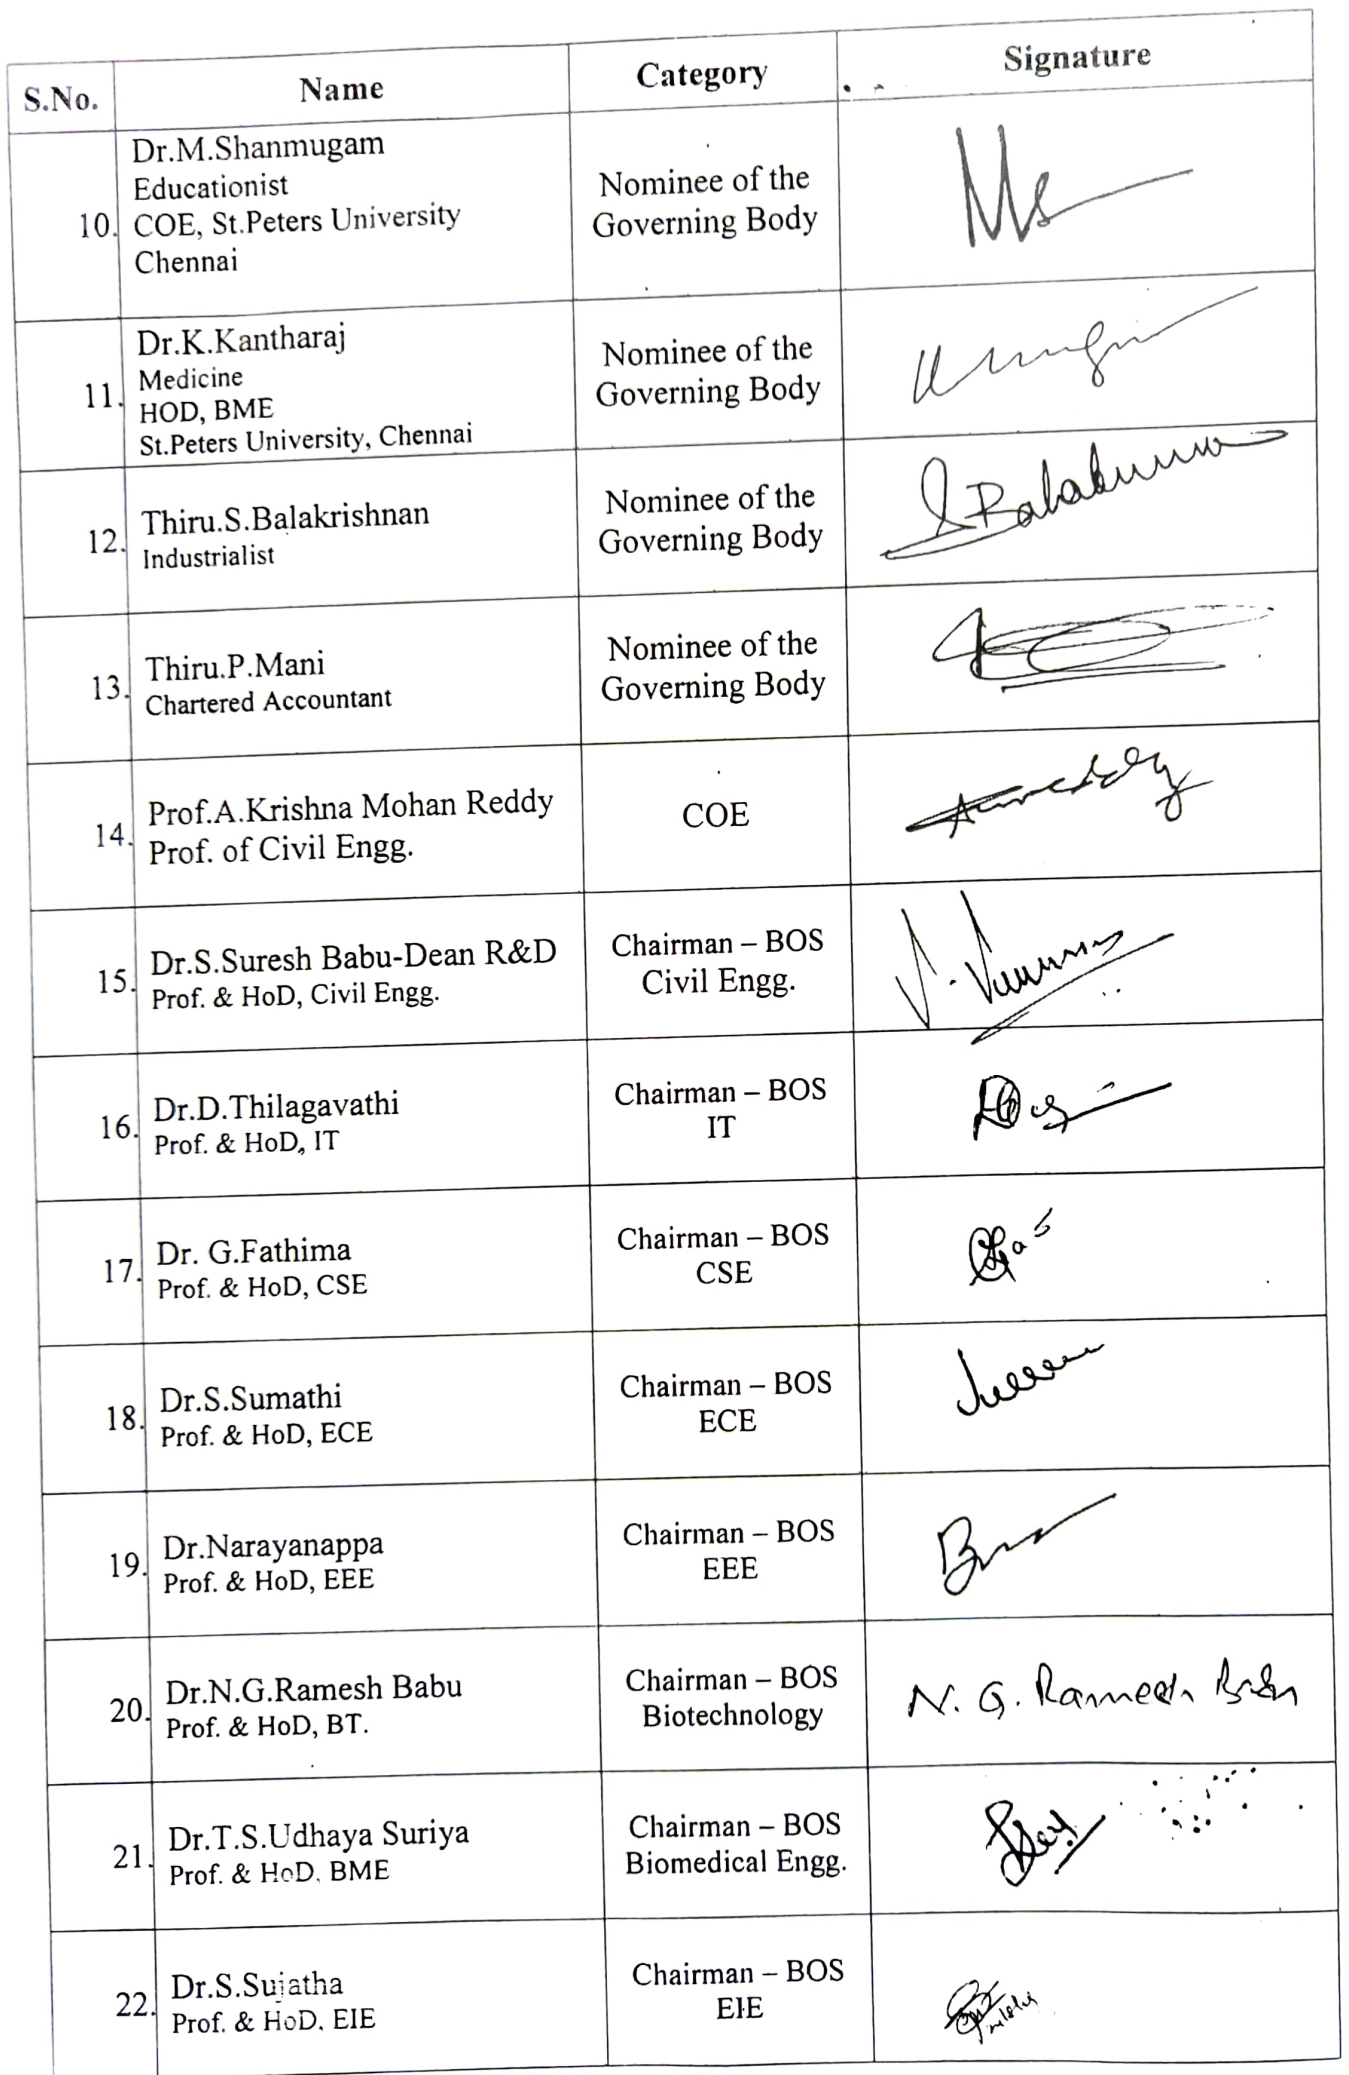 S.No. Name Category Signature
10. Dr.M.Shanmugam
Educationist
COE, St.Peters University
Chennai
Nominee of the
Governing Body
11. Dr.K.Kantharaj
Medicine
HOD, BME
St.Peters University, Chennai
Nominee of the
Governing Body
12. Thiru.S.Balakrishnan
Industrialist
Nominee of the
Governing Body
13. Thiru.P.Mani
Chartered Accountant
Nominee of the
Governing Body
14. Prof.A.Krishna Mohan Reddy
Prof. of Civil Engg.
COE
15. Dr.S.Suresh Babu-Dean R&D
Prof. & HoD, Civil Engg.
Chairman – BOS
Civil Engg.
16. Dr.D.Thilagavathi
Prof. & HoD, IT
Chairman – BOS
IT
17. Dr. G.Fathima
Prof. & HoD, CSE
Chairman – BOS
CSE
18. Dr.S.Sumathi
Prof. & HoD, ECE
Chairman – BOS
ECE
19. Dr.Narayanappa
Prof. & HoD, EEE
Chairman – BOS
EEE
20. Dr.N.G.Ramesh Babu
Prof. & HoD, BT.
Chairman – BOS
Biotechnology
N. G. Ramesh Babu
21. Dr.T.S.Udhaya Suriya
Prof. & HoD, BME
Chairman – BOS
Biomedical Engg.
22. Dr.S.Sujatha
Prof. & HoD, EIE
Chairman – BOS
EIE